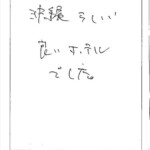 沖縄らしい
良いホテル
でした。